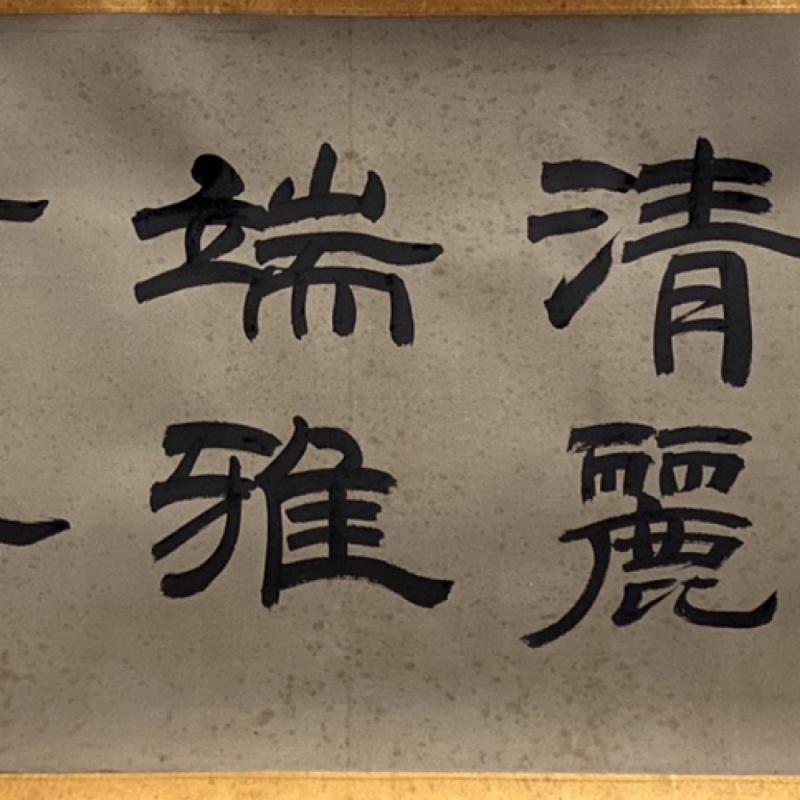 清麗
端雅